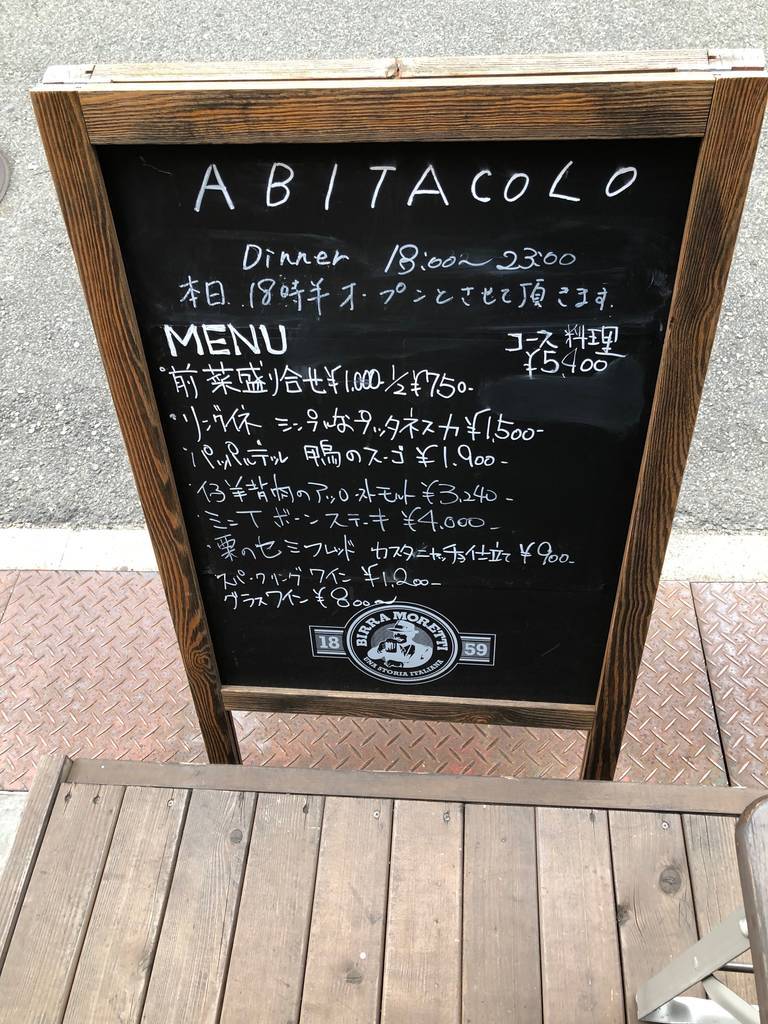 ABITACOLO
Dinner 18:00〜23:00
本日18時半オープンとさせて頂きます
MENU
コース料理
¥5400
・前菜盛り合せ¥1,000- 1/2¥750-
・リングイネ シンプルなプッタネスカ¥1,500-
・パッパルデッレ 鴨のスーゴ¥1,900-
・仔羊背肉のアッロースト モルト¥3,240-
・ミニTボーンステーキ¥4,000-
・栗のセミフレッド カスタニャッチョ仕立て¥900-
・スパークリングワイン¥1,200-
グラスワイン¥800〜
BIRRA MORETTI
18 59
UNA STORIA ITALIANA